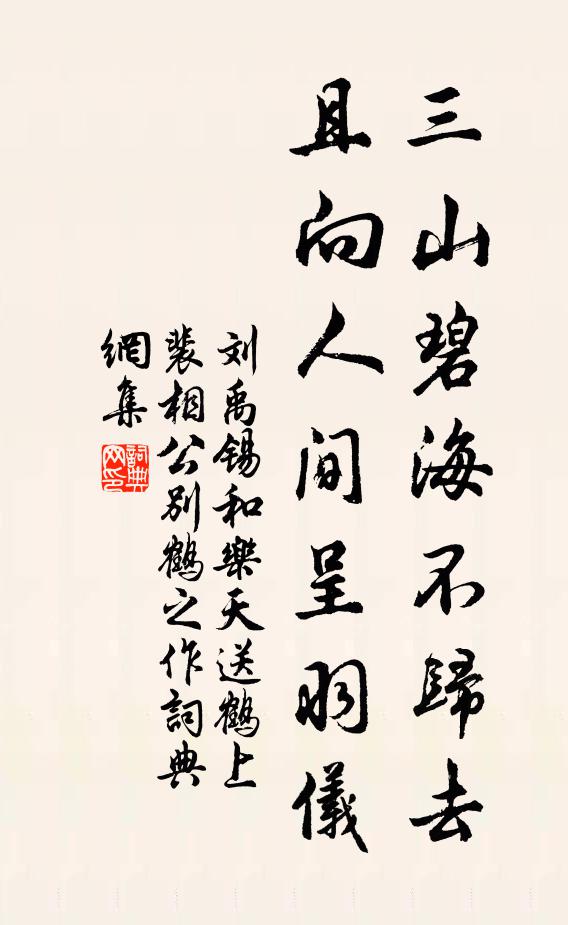 三山碧海不歸去
且向人间呈羽儀
刘禹锡和樂天送鶴上
裴相公别鶴之作詞典
網集
詞典網印